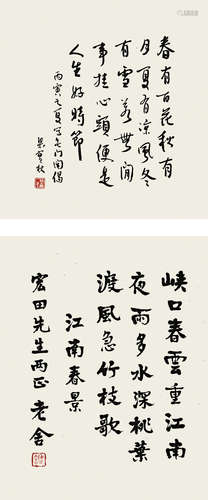 春有百花秋有
月夏有涼風冬
有雪若無閒
事挂心頭便是
人生好時節
丙寅夏
梁實秋
峽口春雲重江南
夜雨多水深桃葉
渡風急竹枝歌
江南春景
宏田先生兩正 老舍